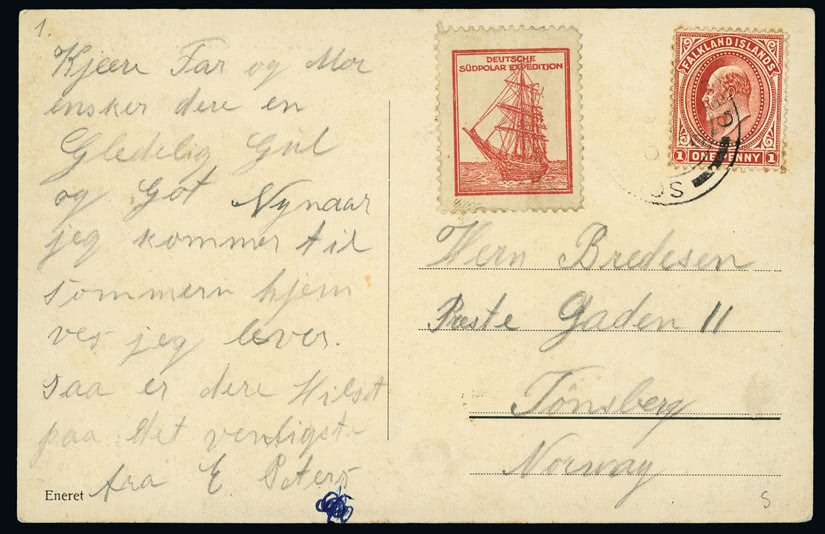 1.
Kjære Far og Mor
ønsker dere en
Gledelig Gul
og Got Nyaar
jeg kommer til
sommern hjem
ves jeg lever.
saa er dere Hilst
paa det venligste
fra E Peters
Eneret
DEUTSCHE
SÜDPOLAR EXPEDITION
FALKLAND ISLANDS
1 ONE PENNY 1
SO
Herr Bredesen
Præste Gaden 11
Tönsberg
Norway
S